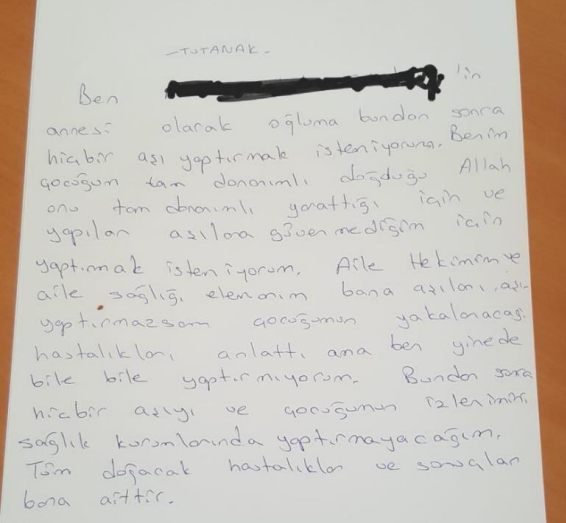 -TUTANAK-
Ben 'in
annesi olarak oğluma bundan sonra
hiçbir aşı yaptırmak istemiyorum. Benim
çocuğum tam donanımlı doğduğu Allah
onu tam donanımlı yarattığı için ve
yapılan aşılara güvenmediğim için
yaptırmak istemiyorum. Aile Hekimim ve
aile sağlığı elemanım bana aşıları, aşı
yaptırmazsam çocuğumun yakalanacağı
hastalıkları anlattı ama ben yinede
bile bile yaptırmıyorum. Bundan sonra
hiçbir aşıyı ve çocuğumun izlemini
sağlık kurumlarında yaptırmayacağım.
Tüm doğacak hastalıklar ve sonuçları
bana aittir.